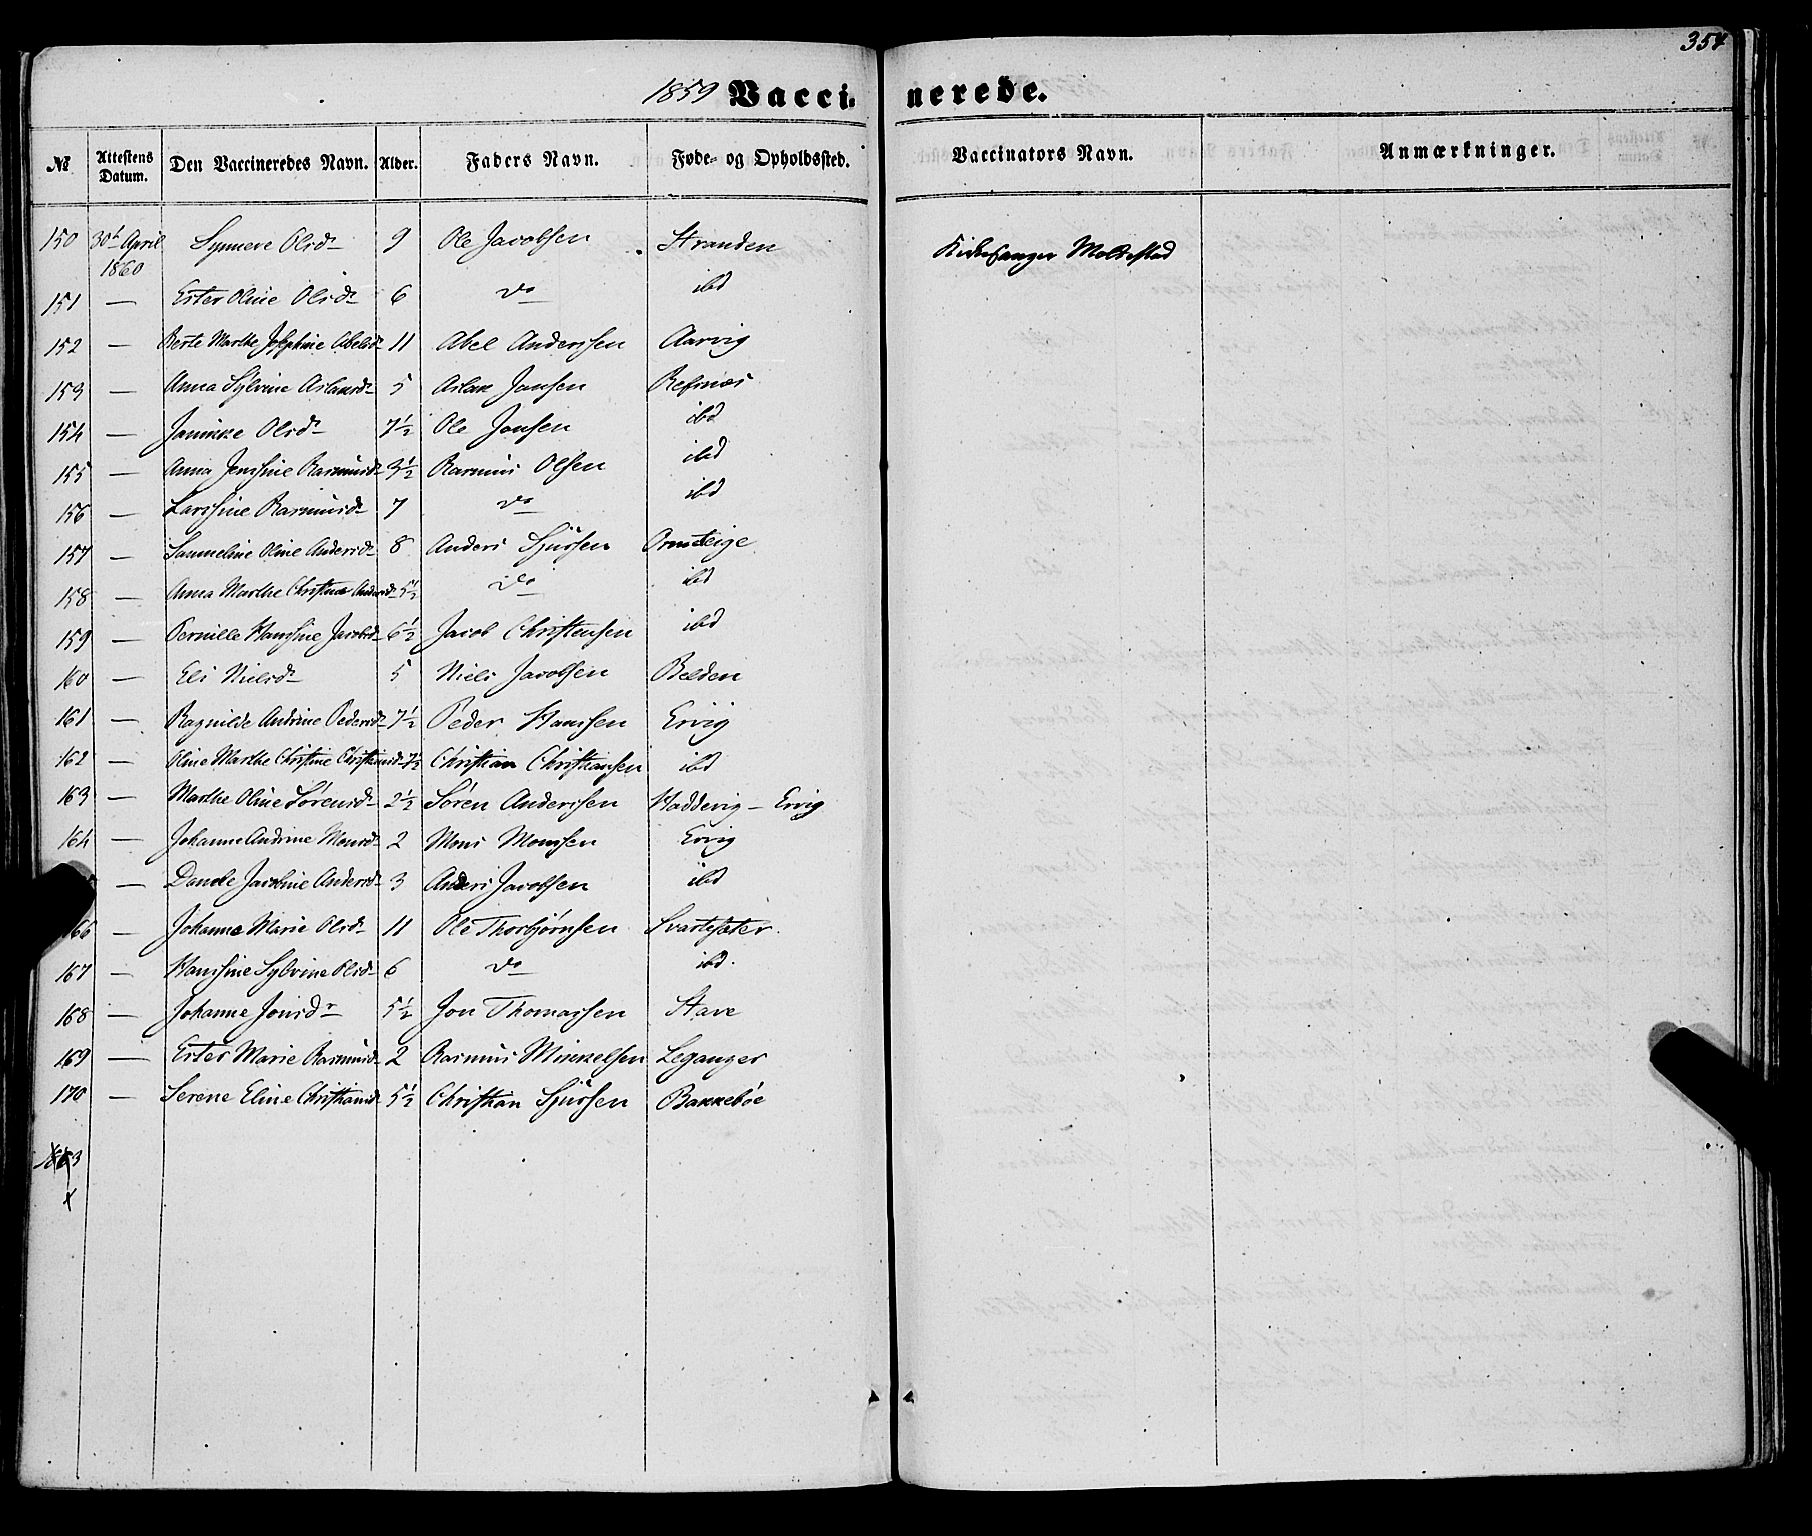 354
1859 Vaccinerede.
№ Attestens Datum. Den Vaccineredes Navn. Alder. Faders Navn. Føde- og Opholdssted. Vaccinators Navn. Anmærkninger.
150 30t April 1860 Synneve Olsdr 9 Ole Jacobsen Stranden Kirkesanger Moldestad
151 — Ester Oline Olsdr 6 do ibd
152 — Berte Marthe Josephine Abelsdr 11 Abel Anderssen Aarvig
153 — Anna Sylvine Aslaksdr 5 Aslak Jansen Refsnæs
154 — Jannikke Olsdr 7½ Ole Jonsen ibd
155 — Anna Jensine Rasmusdr 3½ Rasmus Olsen ibd
156 — Larssine Rasmusdr 7 do ibd
157 — Sanneline Oline Andersdr 8 Anders Sjursen Ornsteige
158 — Anna Marthe Christine Andersdr 5½ do ibd
159 — Pernille Hanssine Jacobsdr 6½ Jacob Christensen ibd
160 — Eli Nielsdr 5 Niels Jacobsen Belden
161 — Ragnilde Andrine Pedersdr 7½ Peder Hanssen Ervig
162 — Oline Marthe Christine Christiansdr 7½ Christian Christiansen ibd
163 — Marthe Oline Sørensdr 2½ Søren Anderssen Haddevig — Ervig
164 — Johanne Andrine Monsdr 2 Mons Monssen Ervig
— Danole Jacobine Andersdr 3 Anders Jacobsen ibd
66 — Johanne Marie Olsdr 11 Ole Thorbjørnsen Svartesæter.
167 — Hanssine Sylvine Olsdr 6 do ibd.
168 — Johanne Jonsdr 5½ Jon Thomassen Stave
169 — Ester Marie Rasmusdr 2 Rasmus Mikkelsen Leganger
170 — Serene Eline Christiansdr 5½ Christian Sjursen Bakkebøe
x